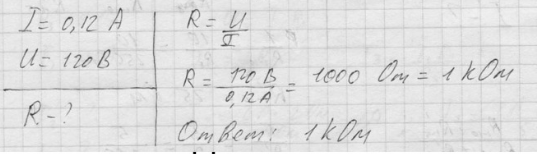 I = 0,12 А
U = 120 В
R - ?
R = U/I
R = 120 В/0,12 А = 1000 Ом = 1 кОм
Ответ: 1 кОм